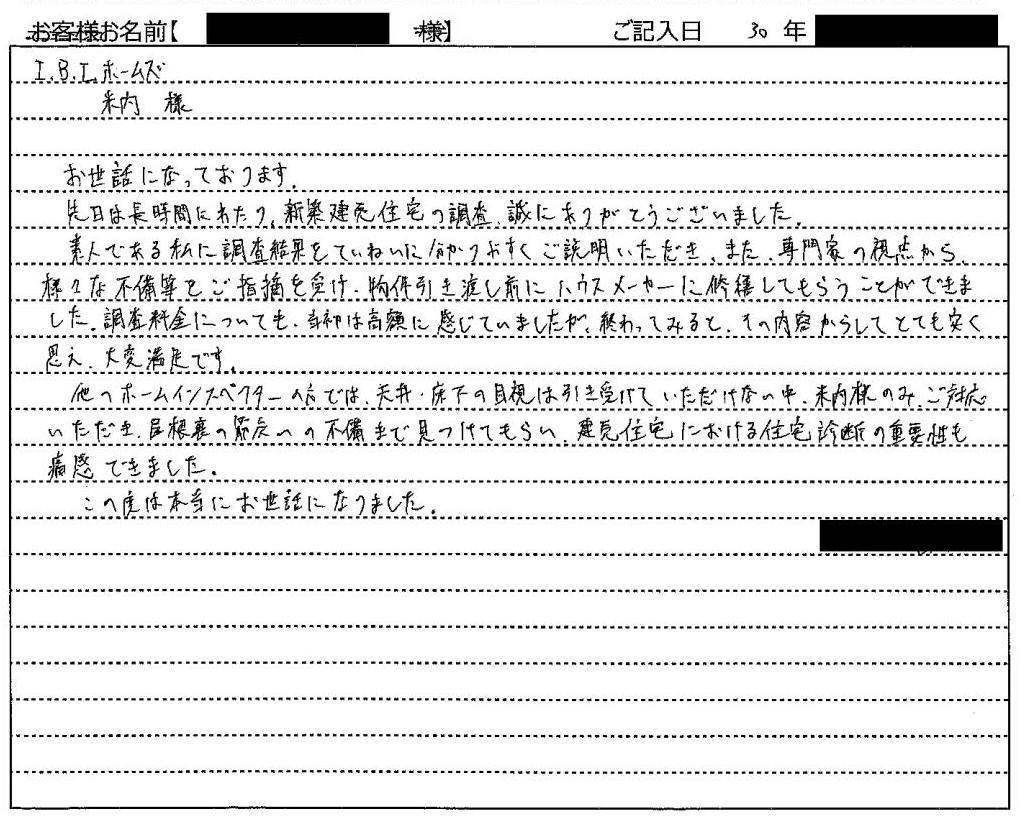 お客様お名前【 様】 ご記入日 30 年
I.B.I.ホームズ
米内 様
お世話になっております。
先日は長時間にわたり、新築建売住宅の調査、誠にありがとうございました。
素人である私に調査結果をていねいに分かりやすくご説明いただき、また、専門家の視点から、
様々な不備等をご指摘を受け、物件引き渡し前にハウスメーカーに修繕してもらうことができま
した。調査料金についても、当初は高額に感じていましたが、終わってみると、その内容からしてとても安く
思え、大変満足です。
他のホームインスペクターの方では、天井・床下の目視は引き受けていただけない中、米内様のみ、ご対応
いただき、屋根裏の筋交いの不備まで見つけてもらい、建売住宅における住宅診断の重要性も
痛感できました。
この度は本当にお世話になりました。